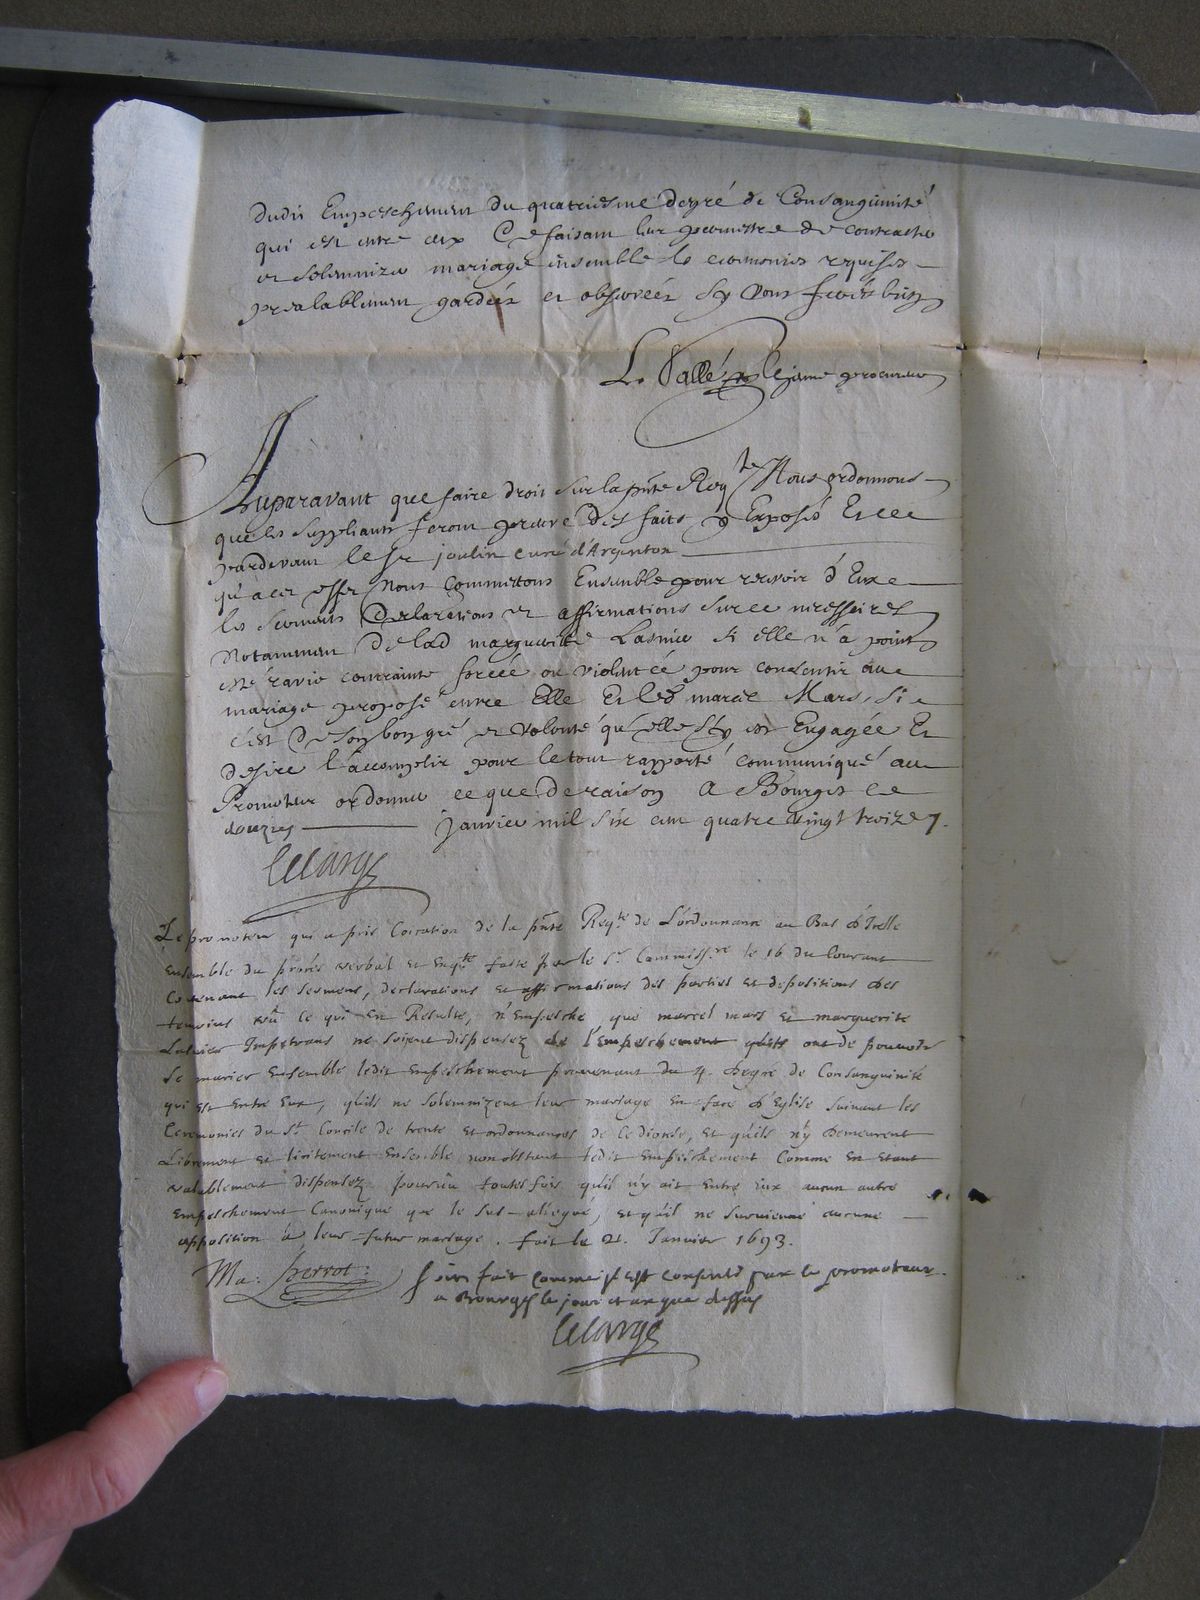 dudit Empeschement du quatriesme degré de Consanguinité
qui est entre eux Ce faisant leur permettre de contracter
et solemnizer mariage ensemble les ceremonies requises
prealablement gardées et observées Sy vous ferés bien
Le Vallé lejeune procureur
Auparavant que faire droit sur la pnte Reqte Nous ordonnons
que les suppliants feront preuve des faits y Exposés Et ce
pardevant le sr joulin curé d'Argenton
qu'a cet effet Nous Commettons Ensemble pour recevoir d'Eux
les serments Declarations et affirmations sur ce necessaires
Notamment de lad marguerite Lasnier si elle n'a point
esté ravie contrainte forcée ou violentée pour consentir au
mariage proposé entre Elle Et led marcel Mars, si
c'est de son bon gré et volonté qu'elle s'y est Engagée Et
desire l'accomplir pour le tout rapporté communiqué au
Promoteur ordonner ce que de raison A Bourges ce
douzies janvier mil six cent quatre vingt treize
Lelarge
Le promoteur qui a pris Coication de la pnte Reqte de L'ordonnance au Bas d'Icelle
Ensemble du procés verbal et Enqte faite par le Sr Commissre le 16 du Courant
Contenant les sermens, declarations et affirmations des parties et depositions des
temoins vû ce qui En Resulte, n'Empesche que marcel mars et marguerite
Lasnier Impetrans ne soient dispensez de l'empeschement qu'ils ont de pouvoir
se marier Ensemble ledit Empeschement provenant du 4. degre de Consanguinité
qui est Entre Eux, qu'ils ne solemnizent leur mariage En face d'Eglise suivant les
Ceremonies du St Concile de trente et ordonnances de ce diocese, et qu'ils n'y demeurent
Librement et licitement Ensemble nonobstant ledit Empeschement Comme En Etant
valablement dispensez pourvû toutes fois qu'il n'y ait Entre Eux aucun autre
Empeschement Canonique que le sus-allegué, et qu'il ne survienne aucune
opposition à leur futur mariage. fait le 21. Janvier 1693.
Ma: Perrot:
soit fait comme il est consenti par le promoteur.
a Bourges le jour et an que dessus
Lelarge